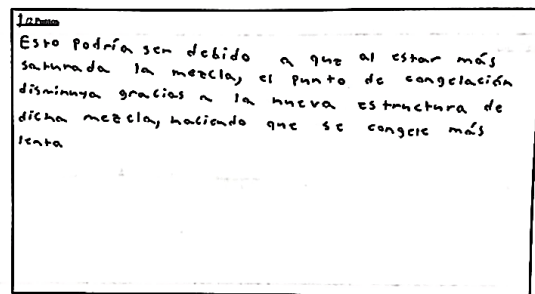 1 (2 Puntos)
Esto podría ser debido a que al estar más
saturada la mezcla, el punto de congelación
disminuya gracias a la nueva estructura de
dicha mezcla, haciendo que se congele más
lenta